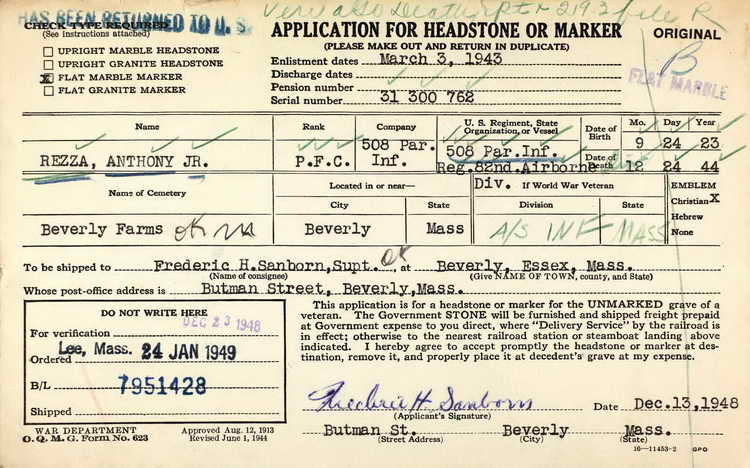 HAS BEEN RETURNED TO U. S.
CHECK TYPE REQUIRED
(See instructions attached)
UPRIGHT MARBLE HEADSTONE
UPRIGHT GRANITE HEADSTONE
X FLAT MARBLE MARKER
FLAT GRANITE MARKER
APPLICATION FOR HEADSTONE OR MARKER
(PLEASE MAKE OUT AND RETURN IN DUPLICATE)
ORIGINAL
Enlistment dates March 3, 1943
Discharge dates
Pension number
Serial number 31 300 762
B
FLAT MARBLE
Name Rank Company U. S. Regiment, State Organization, or Vessel Date of Birth Mo. Day Year
REZZA, ANTHONY JR. P.F.C. 508 Par. Inf. 508 Par.Inf. Reg.82nd.Airborne 9 24 23
Date of Death 12 24 44
Name of Cemetery Located in or near— Div. If World War Veteran EMBLEM
City State Division State Christian X
Hebrew
None
Beverly Farms ok Beverly Mass A/S INF MASS
To be shipped to Frederic H.Sanborn,Supt. OK at Beverly, Essex, Mass.
(Name of consignee) (Give NAME OF TOWN, county, and State)
Whose post-office address is Butman Street, Beverly,Mass.
DO NOT WRITE HERE
DEC 23 1948
For verification
Lee, Mass. 24 JAN 1949
Ordered
B/L 7951428
Shipped
This application is for a headstone or marker for the UNMARKED grave of a
veteran. The Government STONE will be furnished and shipped freight prepaid
at Government expense to you direct, where "Delivery Service" by the railroad is
in effect; otherwise to the nearest railroad station or steamboat landing above
indicated. I hereby agree to accept promptly the headstone or marker at des-
tination, remove it, and properly place it at decedent's grave at my expense.
Frederic H. Sanborn Date Dec.13,1948
(Applicant's Signature)
Butman St. Beverly Mass.
(Street Address) (City) (State)
WAR DEPARTMENT
O. Q. M. G. Form No. 623
Approved Aug. 12, 1913
Revised June 1, 1944
16—11453-2 GPO